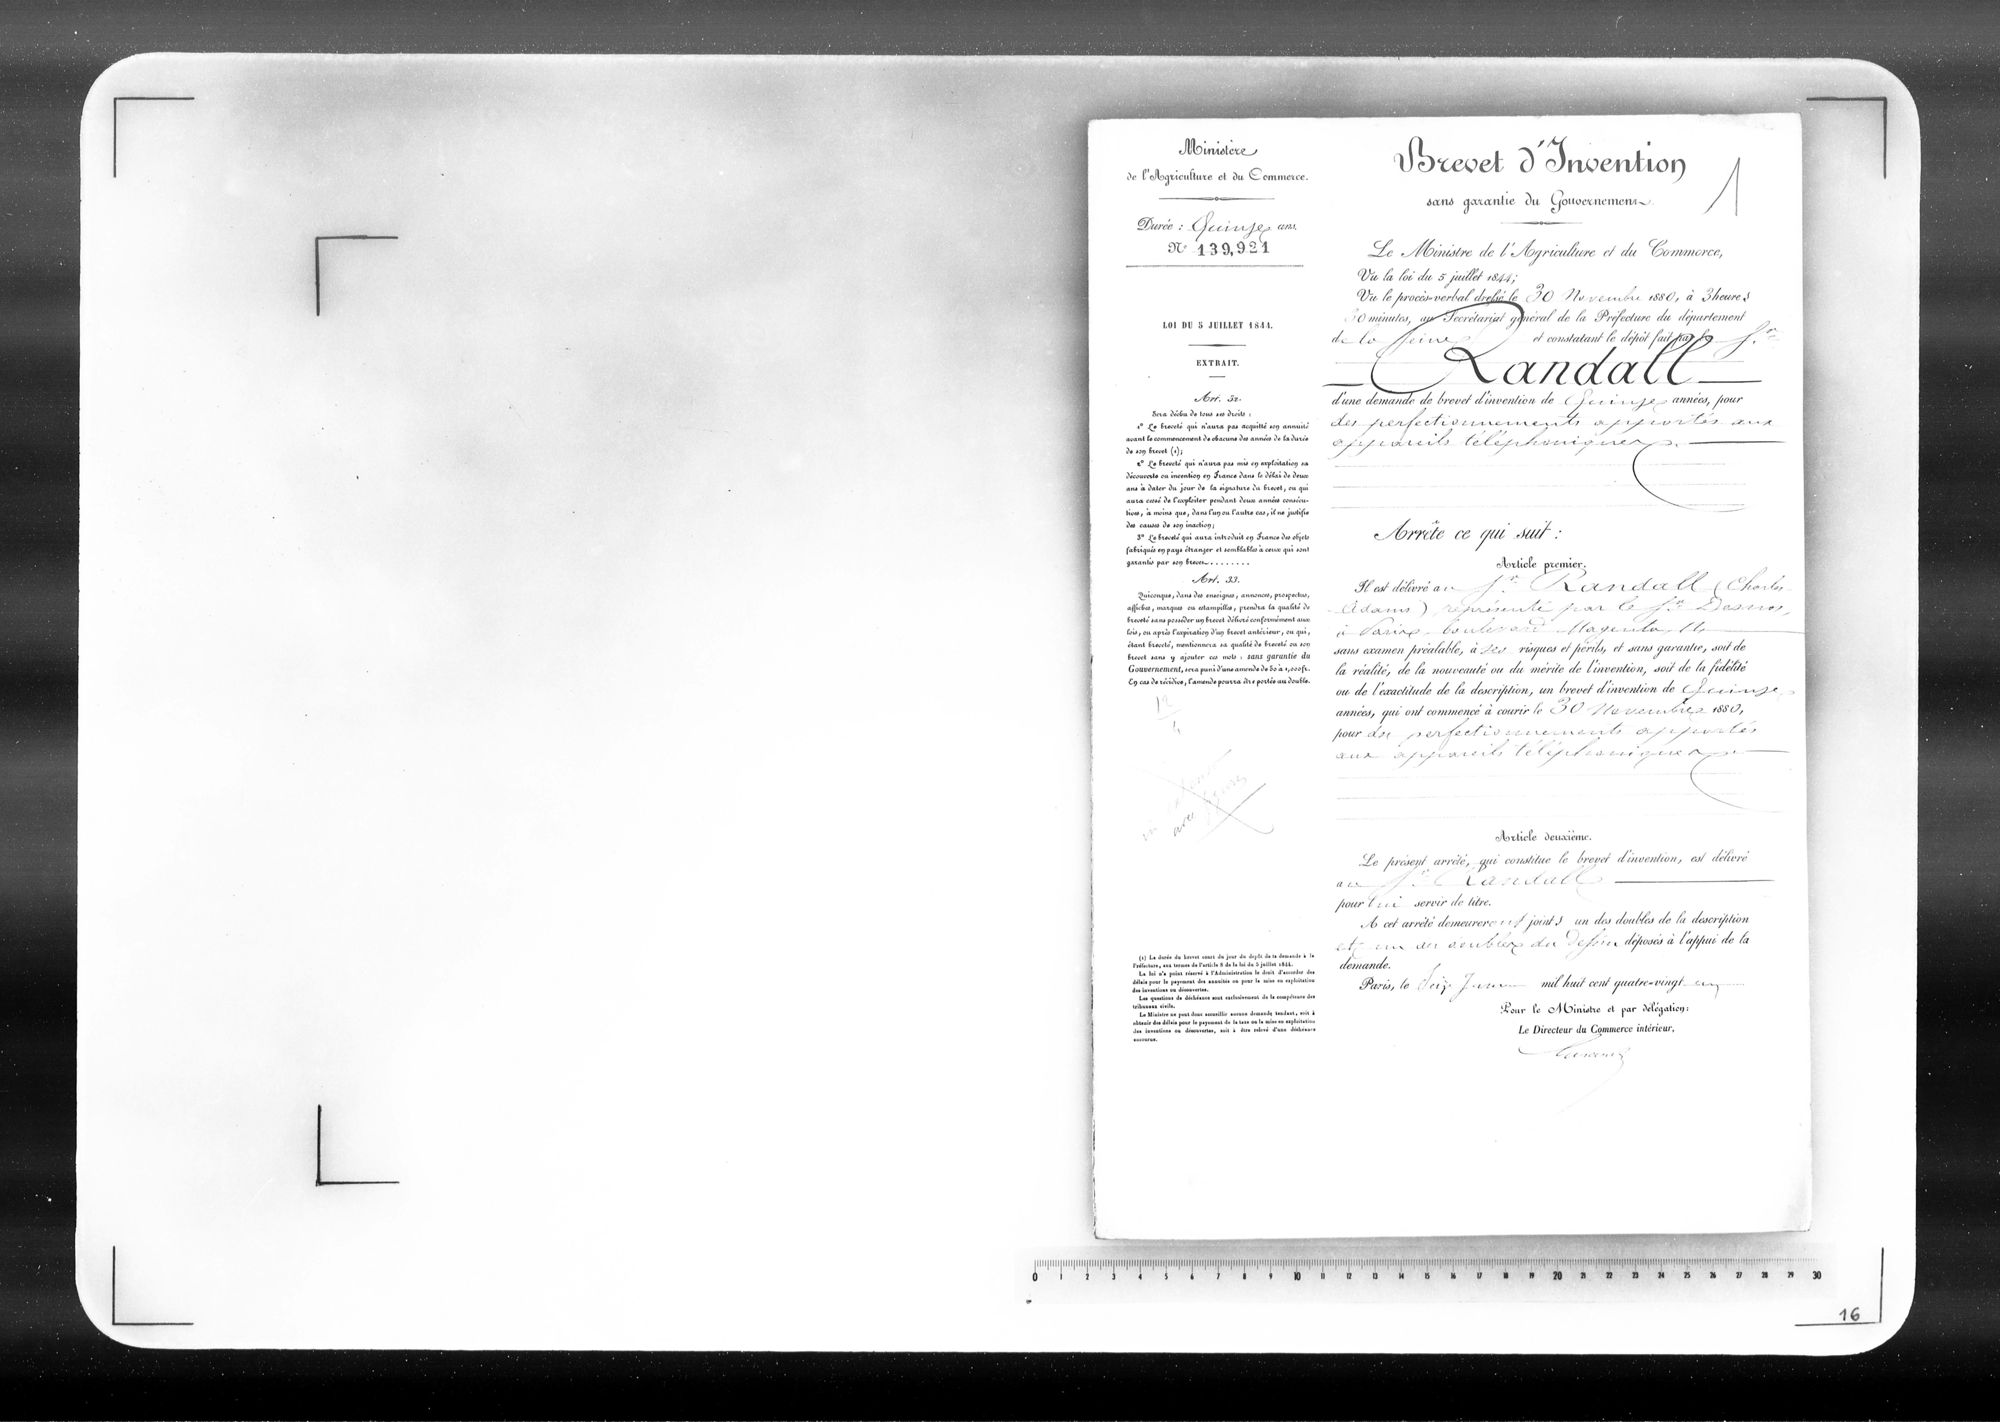 Ministère
de l'Agriculture et du Commerce.
Durée : Quinze ans.
N° 139,921
LOI DU 5 JUILLET 1844.
EXTRAIT.
Art. 32.
Sera déchu de tous ses droits :
1° Le breveté qui n'aura pas acquitté son annuité
avant le commencement de chacune des années de la durée
de son brevet (1);
2° Le breveté qui n'aura pas mis en exploitation sa
découverte ou invention en France dans le délai de deux
ans à dater du jour de la signature du brevet, ou qui
aura cessé de l'exploiter pendant deux années consécu-
tives, à moins que, dans l'un ou l'autre cas, il ne justifie
des causes de son inaction;
3° Le breveté qui aura introduit en France des objets
fabriqués en pays étranger et semblables à ceux qui sont
garantis par son brevet........
Art. 33.
Quiconque, dans des enseignes, annonces, prospectus,
affiches, marques ou estampilles, prendra la qualité de
breveté sans posséder un brevet délivré conformément aux
lois, ou après l'expiration d'un brevet antérieur, ou qui,
étant breveté, mentionnera sa qualité de breveté ou son
brevet sans y ajouter ces mots : sans garantie du
Gouvernement, sera puni d'une amende de 50 à 1,000 fr.
En cas de récidive, l'amende pourra être portée au double.
12
4
avec figures
(1) La durée du brevet court du jour du dépôt de la demande à la
Préfecture, aux termes de l'article 8 de la loi du 5 juillet 1844.
La loi n'a point réservé à l'Administration le droit d'accorder des
délais pour le payement des annuités ou pour la mise en exploitation
des inventions ou découvertes.
Les questions de déchéance sont exclusivement de la compétence des
tribunaux civils.
Le Ministre ne peut donc accueillir aucune demande tendant, soit à
obtenir des délais pour le payement de la taxe ou la mise en exploitation
des inventions ou découvertes, soit à être relevé d'une déchéance
encourue.
Brevet d'Invention
1
sans garantie du Gouvernement.
Le Ministre de l'Agriculture et du Commerce,
Vu la loi du 5 juillet 1844;
Vu le procès-verbal dressé le 30 Novembre 1880, à 3 heures
30 minutes, au Secrétariat général de la Préfecture du département
de la Seine et constatant le dépôt fait par le Sr.
Randall
d'une demande de brevet d'invention de Quinze années, pour
des perfectionnements apportés aux
appareils téléphoniques.
Arrête ce qui suit :
Article premier.
Il est délivré au Sr. Randall (Charles
Adams), représenté par le Sr. Desnos,
à Paris, boulevard Magenta, 11,
sans examen préalable, à ses risques et périls, et sans garantie, soit de
la réalité, de la nouveauté ou du mérite de l'invention, soit de la fidélité
ou de l'exactitude de la description, un brevet d'invention de Quinze
années, qui ont commencé à courir le 30 Novembre 1880,
pour des perfectionnements apportés
aux appareils téléphoniques.
Article deuxième.
Le présent arrêté, qui constitue le brevet d'invention, est délivré
au Sr. Randall
pour lui servir de titre.
A cet arrêté demeureront joints un des doubles de la description
et un des doubles du dessin déposés à l'appui de la
demande.
Paris, le Seize mil huit cent quatre-vingt un
Pour le Ministre et par délégation :
Le Directeur du Commerce intérieur,
0 1 2 3 4 5 6 7 8 9 10 11 12 13 14 15 16 17 18 19 20 21 22 23 24 25 26 27 28 29 30
16